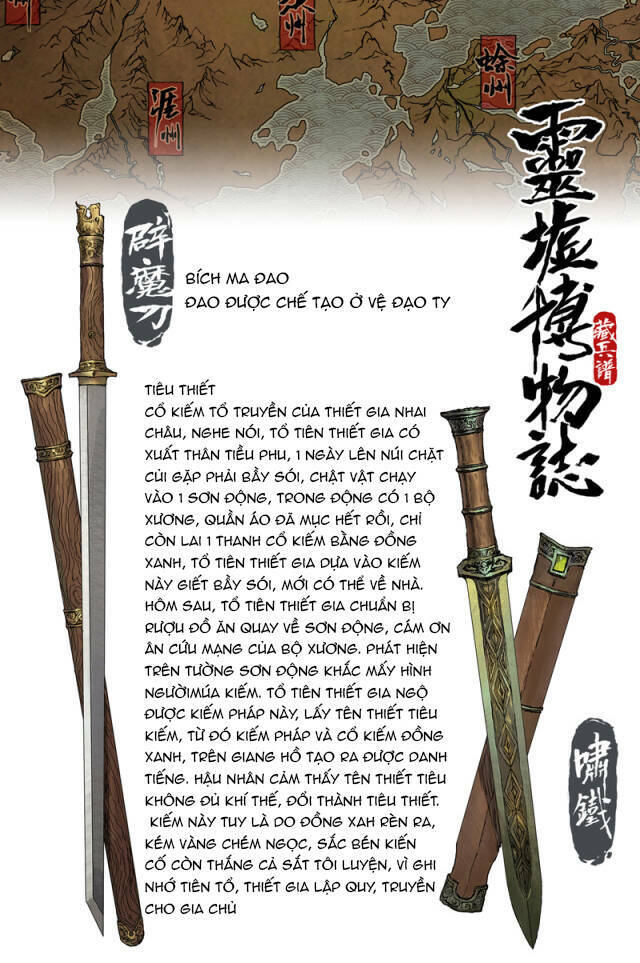 涯州
蜍州
靈墟博物誌
藏兵譜
辟魔刀
BÍCH MA ĐAO
ĐAO ĐƯỢC CHẾ TẠO Ở VỆ ĐẠO TY
TIÊU THIẾT
CỔ KIẾM TỔ TRUYỀN CỦA THIẾT GIA NHAI
CHÂU, NGHE NÓI, TỔ TIÊN THIẾT GIA CÓ
XUẤT THÂN TIỀU PHU, 1 NGÀY LÊN NÚI CHẶT
CỦI GẶP PHẢI BẦY SÓI, CHẬT VẬT CHẠY
VÀO 1 SƠN ĐỘNG, TRONG ĐỘNG CÓ 1 BỘ
XƯƠNG, QUẦN ÁO ĐÃ MỤC HẾT RỒI, CHỈ
CÒN LAI 1 THANH CỔ KIẾM BẰNG ĐỒNG
XANH, TỔ TIÊN THIẾT GIA DỰA VÀO KIẾM
NÀY GIẾT BẦY SÓI, MỚI CÓ THỂ VỀ NHÀ.
HÔM SAU, TỔ TIÊN THIẾT GIA CHUẨN BỊ
RƯỢU ĐỒ ĂN QUAY VỀ SƠN ĐỘNG, CÁM ƠN
ÂN CỨU MẠNG CỦA BỘ XƯƠNG. PHÁT HIỆN
TRÊN TƯỜNG SƠN ĐỘNG KHẮC MẤY HÌNH
NGƯỜIMÚA KIẾM. TỔ TIÊN THIẾT GIA NGỘ
ĐƯỢC KIẾM PHÁP NÀY, LẤY TÊN THIẾT TIÊU
KIẾM, TỪ ĐÓ KIẾM PHÁP VÀ CỔ KIẾM ĐỒNG
XANH, TRÊN GIANG HỒ TẠO RA ĐƯỢC DANH
TIẾNG. HẬU NHÂN CẢM THẤY TÊN THIẾT TIÊU
KHÔNG ĐỦ KHÍ THẾ, ĐỔI THÀNH TIÊU THIẾT.
KIẾM NÀY TUY LÀ DO ĐỒNG XAH RÈN RA,
KÉM VÀNG CHÉM NGỌC, SẮC BÉN KIẾN
CỐ CÒN THẮNG CẢ SẮT TÔI LUYỆN, VÌ GHI
NHỚ TIÊN TỔ, THIẾT GIA LẬP QUY, TRUYỀN
CHO GIA CHỦ
嘯鐵